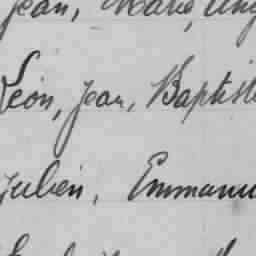 Jean, Marie,
Léon, Jean, Baptist
Julien, Emmanu